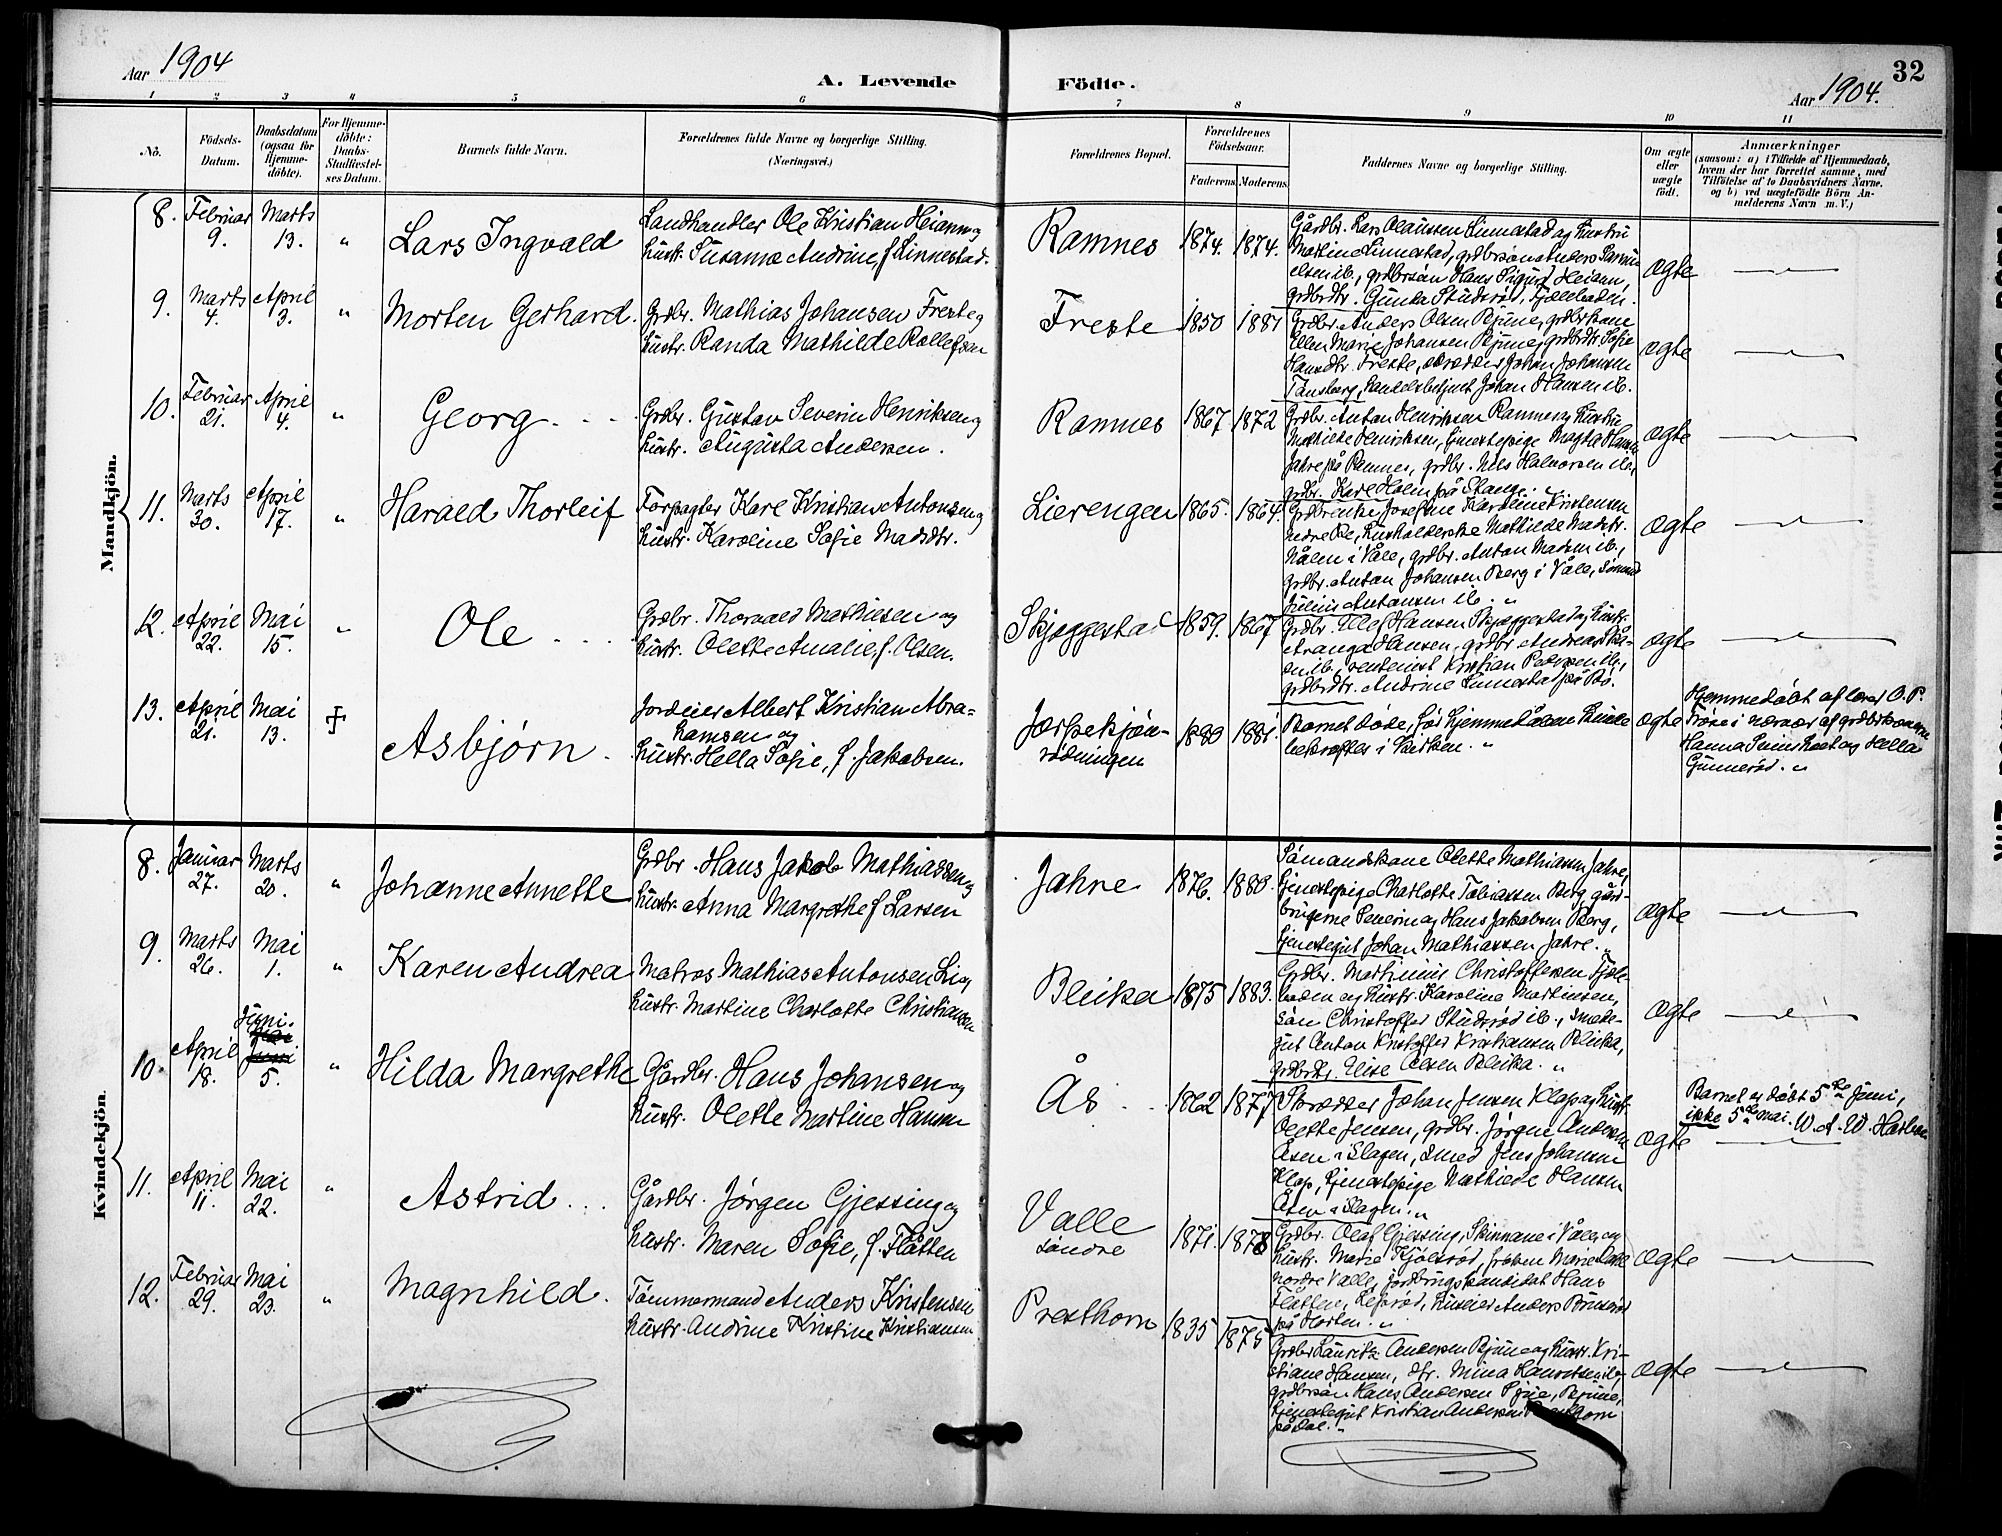 Aar 1904
A. Levende
Födte.
32
Aar 1904.
1 2 3 4 5 6 7 8 9 10 11
No.
Födsels-
Datum.
Daabsdatum
(ogsaa for
Hjemme-
döbte).
For Hjemme-
döbte:
Daabs-
Stadfæstel-
ses Datum.
Barnets fulde Navn.
Forældrenes fulde Navne og borgerlige Stilling.
(Næringsvei.)
Forældrenes Bopæl.
Forældrenes
Födselsaar.
Faderens. Moderens.
Faddernes Navne og borgerlige Stilling.
Om ægte
eller
uægte
født.
Anmærkninger
(saasom: a) i Tilfælde af Hjemmedaab,
hvem der har forrettet samme, med
Tilföielse af to Daabsvidners Navne,
og b) ved uægtefödte Börn An-
melderens Navn m. V.)
Mandkjön.
8. Februar 9. Marts 13. „ Lars Ingvald
Landhandler Ole Kristian Heian og
hustr. Susanna Andrine, f. Linnestad.
Ramnes 1874. 1874.
Gårdbr. Lars Olaussen Linnestad og hustru
ægte
9. Marts 4. April 3. „ Morten Gerhard.
Grdbr. Mathias Johansen Freste og
hustr. Randa Mathilde Rollefsen
Freste 1850 1881
Grdbr. Anders Olsen Bjune, grdbrkone
Ellen Marie Johansen Bjune, grdbrdtr. Sofie
Hansdtr. Freste, skrædder Johan Johansen
Tønsberg, handelsbetjent Johan Hansen ib.
ægte
10. Februar 21. April 4. „ Georg
Grdbr. Gustav Severin Henriksen og
hustr. Augusta Andersen.
Ramnes 1867 1872
Grdbr. Anton Henriksen Ramnes og hustru
Mathilde Henriksen, tjenestepige Magda Hansen
Jahre på Ramnes, grdbr. Nils Halvorsen ib.,
grdbr. Karl Holm på Stange.
ægte
11. Marts 30. April 17. „ Harald Thorleif
Forpagter Karl Kristian Antonsen og
hustr. Karoline Sofie Madsdtr.
Lierengen 1865. 1864.
Grdbrenke Josefine Karoline Kristensen
nedre Ole, husholderske Mathilde Madsdtr.
i Våle, grdbr. Anton Madsen ib.,
grdbr. Anton Johansen Berg i Våle, sömand
Julius Antonsen ib. „
ægte
12. April 22. Mai 15. „ Ole
Grdbr. Thorvald Mathisen og
hustr. Olette Amalie, f. Olsen.
Skjeggestad 1859. 1867
Grdbr. Ulef Hansen Skjeggestad og hustr.
Hansen, grdbr. Andreas
ib., rentenist Kristian Pedersen ib.,
grdbrdtr. Andrine Linnestad på Bö.
ægte
13. April 21. Mai 13. Asbjørn.
Jordeier Albert Kristian Abra=
hamsen og
hustr. Hella Sofie, f. Jakobsen.
Jarpekjøn-
rødningen
1880 1881.
Barnet døde, før hjemmedåben kunde
bekræftes i kirken. „
ægte
Hjemmedöbt af lærer O. P.
Trøne i nærvær af grdbrkonerne
Hanna og Hella
Gunnerød. „
Kvindekjön.
8. Januar 27. Marts 20. „ Johanne Annette
Grdbr. Hans Jakob Mathiassen og
hustr. Anna Margrethe f. Larsen
Jahre 1876. 1880.
Sömandskone Olette Mathiassen Jahre,
tjenestepige Charlotte Tobiassen Berg, gård-
brugerne Severin og Hans Jakobsen Berg,
tjenestegut Johan Mathiassen Jahre. „
ægte
9. Marts 26. Mai 1. „ Karen Andrea
Matros Mathias Antonsen Li og
hustr. Martine Charlotte Christiansen
Bleika 1875 1883.
Grdbr. Martinius Christoffersen Fjæle-
baden og hustr. Karoline Martinsen,
sön Christoffer Studsrød ib., smede-
gut Anton Kristoffer Kristiansen Bleika,
grdbrdtr. Elise Olsen Bleika. „
ægte
10. April 18. Juni. 5. „ Hilda Margrethe
Gårdbr. Hans Johansen og
hustr. Olette Martine Hansen
Ås 1862 1877
Skrædder Johan Jensen Klop og hustr.
Olette Jensen, grdbr. Jörgen Andersen
Åsen i Slagen, smed Jens Johansen
Klop, tjenestepige Mathilde Hansen
Åsen i Slagen. „
ægte
Barnet er døbt 5te Juni,
ikke 5te mai. W. A. W.
11. April 11. Mai 22. „ Astrid
Gårdbr. Jörgen Gjessing og
hustr. Maren Sofie, f. Flåtten
Valle
søndre
1871. 1878
Grdbr. Olaf Gjessing, Skinnane i Våle, og
hustr. Marie Kjølsrød, frøken Marie
nordre Valle, jordbrugskandidat Hans
Flåtten, Lefsrød, huseier Anders
på Horten. „
ægte
12. Februar 29. Mai 23. „ Magnhild.
Tömmermand Anders Kristensen
hustr. Andrine Kristine Kristiansen
Presthorn 1835 1875
Grdbr. Lauritz Andersen Bjune og hustr. Kri-
stiane Hansen, dtr. Mina Lauritsen ib.,
grdbrsön Hans Andersen Bjune,
tjenestegut Kristian Andersen Presthorn
på Dal. „
ægte